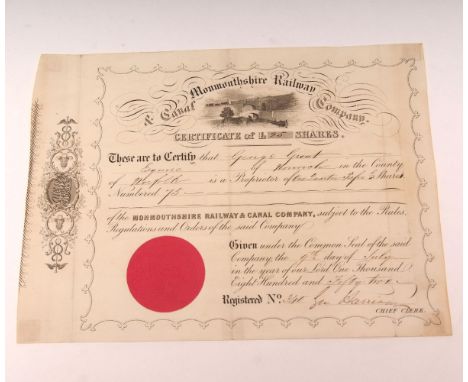 Monmouthshire Railway
& Canal Company.
CERTIFICATE of £ SHARES.
These are to Certify that George Grout
Esquire of Norwich in the County
of Norfolk is a Proprietor of Shares
Numbered 75
of the MONMOUTHSHIRE RAILWAY & CANAL COMPANY, subject to the Rules,
Regulations and Orders of the said Company.
Given under the Common Seal of the said
Company, the 9th day of July
in the year of our Lord One Thousand
Eight Hundred and Fifty two
Registered No. Geo Harrison
CHIEF CLERK.